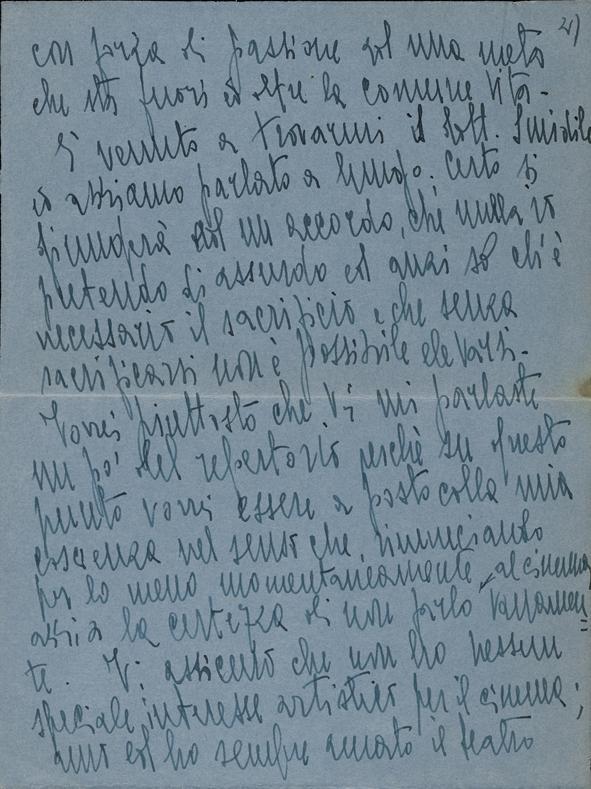 2)
con forza di passione ad una meta
che sta fuori ed oltre la comune vita.
È venuto a trovarmi il Dott.
ed abbiamo parlato a lungo. Certo si
giungerà ad un accordo, chè nulla io
pretendo di assurdo ed anzi so ch'è
necessario il sacrificio e che senza
sacrificarsi non è possibile elevarsi.
Vorrei piuttosto che Vi mi parlaste
un po' del repertorio perchè su questo
punto vorrei essere a posto colla mia
coscienza nel senso che, rinunciando
per lo meno momentaneamente, al cinema
abbia la certezza di non farlo vanamen=
te. Vi assicuro che non ho nessun
speciale interesse artistico per il cinema;
amo ed ho sempre amato il teatro